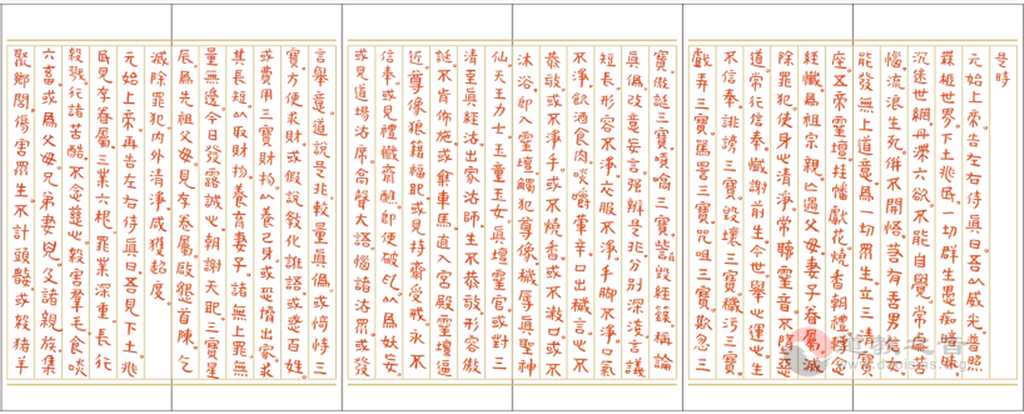 是時
元始上帝告左右侍真曰吾以威光普照
羅極世界下土兆民一切群生愚痴暗昧
沉迷世網丹滯六欲不能自覺常處苦
惱流浪生死併不開悟若有善男信女
能發無上道意為一切眾生立三清寶
座五帝靈壇挂幡獻花燒香朝禮持念
經懺為祖宗親亡過父母妻子眷屬滅
除罪犯使身心清淨常聽靈音不聞惡
道常行信奉懺謝前生今世舉心運心生
不信奉誹謗三寶毀壞三寶穢污三寶
戲弄三寶罵詈三寶咒咀三寶欺忽三
寶傲誕三寶嗔嗃三寶訾毀經籙稱論
真偽改意妄言強辨是非分別深淺言議
短長形容不淨衣服不淨手腳不淨口氣
不淨飲酒食肉啖嚼葷辛口出穢言心不
恭敬或不淨手或不燒香或不漱口或不
沐浴即入靈壇觸犯尊像穢辱真聖神
仙天王力士玉童玉女真壇靈官或對三
清至真經法出家法師生不恭敬形容傲
誕不肯佈施或乘車馬直入宮殿靈壇逼
近尊像狼籍或見持齋受戒永不
信奉或見禮懺齋醮即便破乱以為妖妄
或見道場法席高聲大語惱諸法眾或發
言舉意道說是非較量真偽或倚恃三
寶方便求財或假說教化誑語或惑百姓
或費用三寶財物以養己身或恐嚇出家求
其長短以取財物養育妻子諸無上罪無
量無邊今日發露誠心朝謝天地三寶星
辰為先祖父母見存眷屬啟懇首陳乞
滅除罪犯內外清淨咸獲超度
元始上帝再告左右侍真曰吾見下土兆
民見存眷屬三業六根罪業深重長行
殺戮行諸苦酷不念慈心殺害羣毛食啖
六畜或為父母兄弟妻兒及諸親族集
聚鄉閭傷害眾生不計頭骸或殺豬羊
道教之音
www.daoisms.org